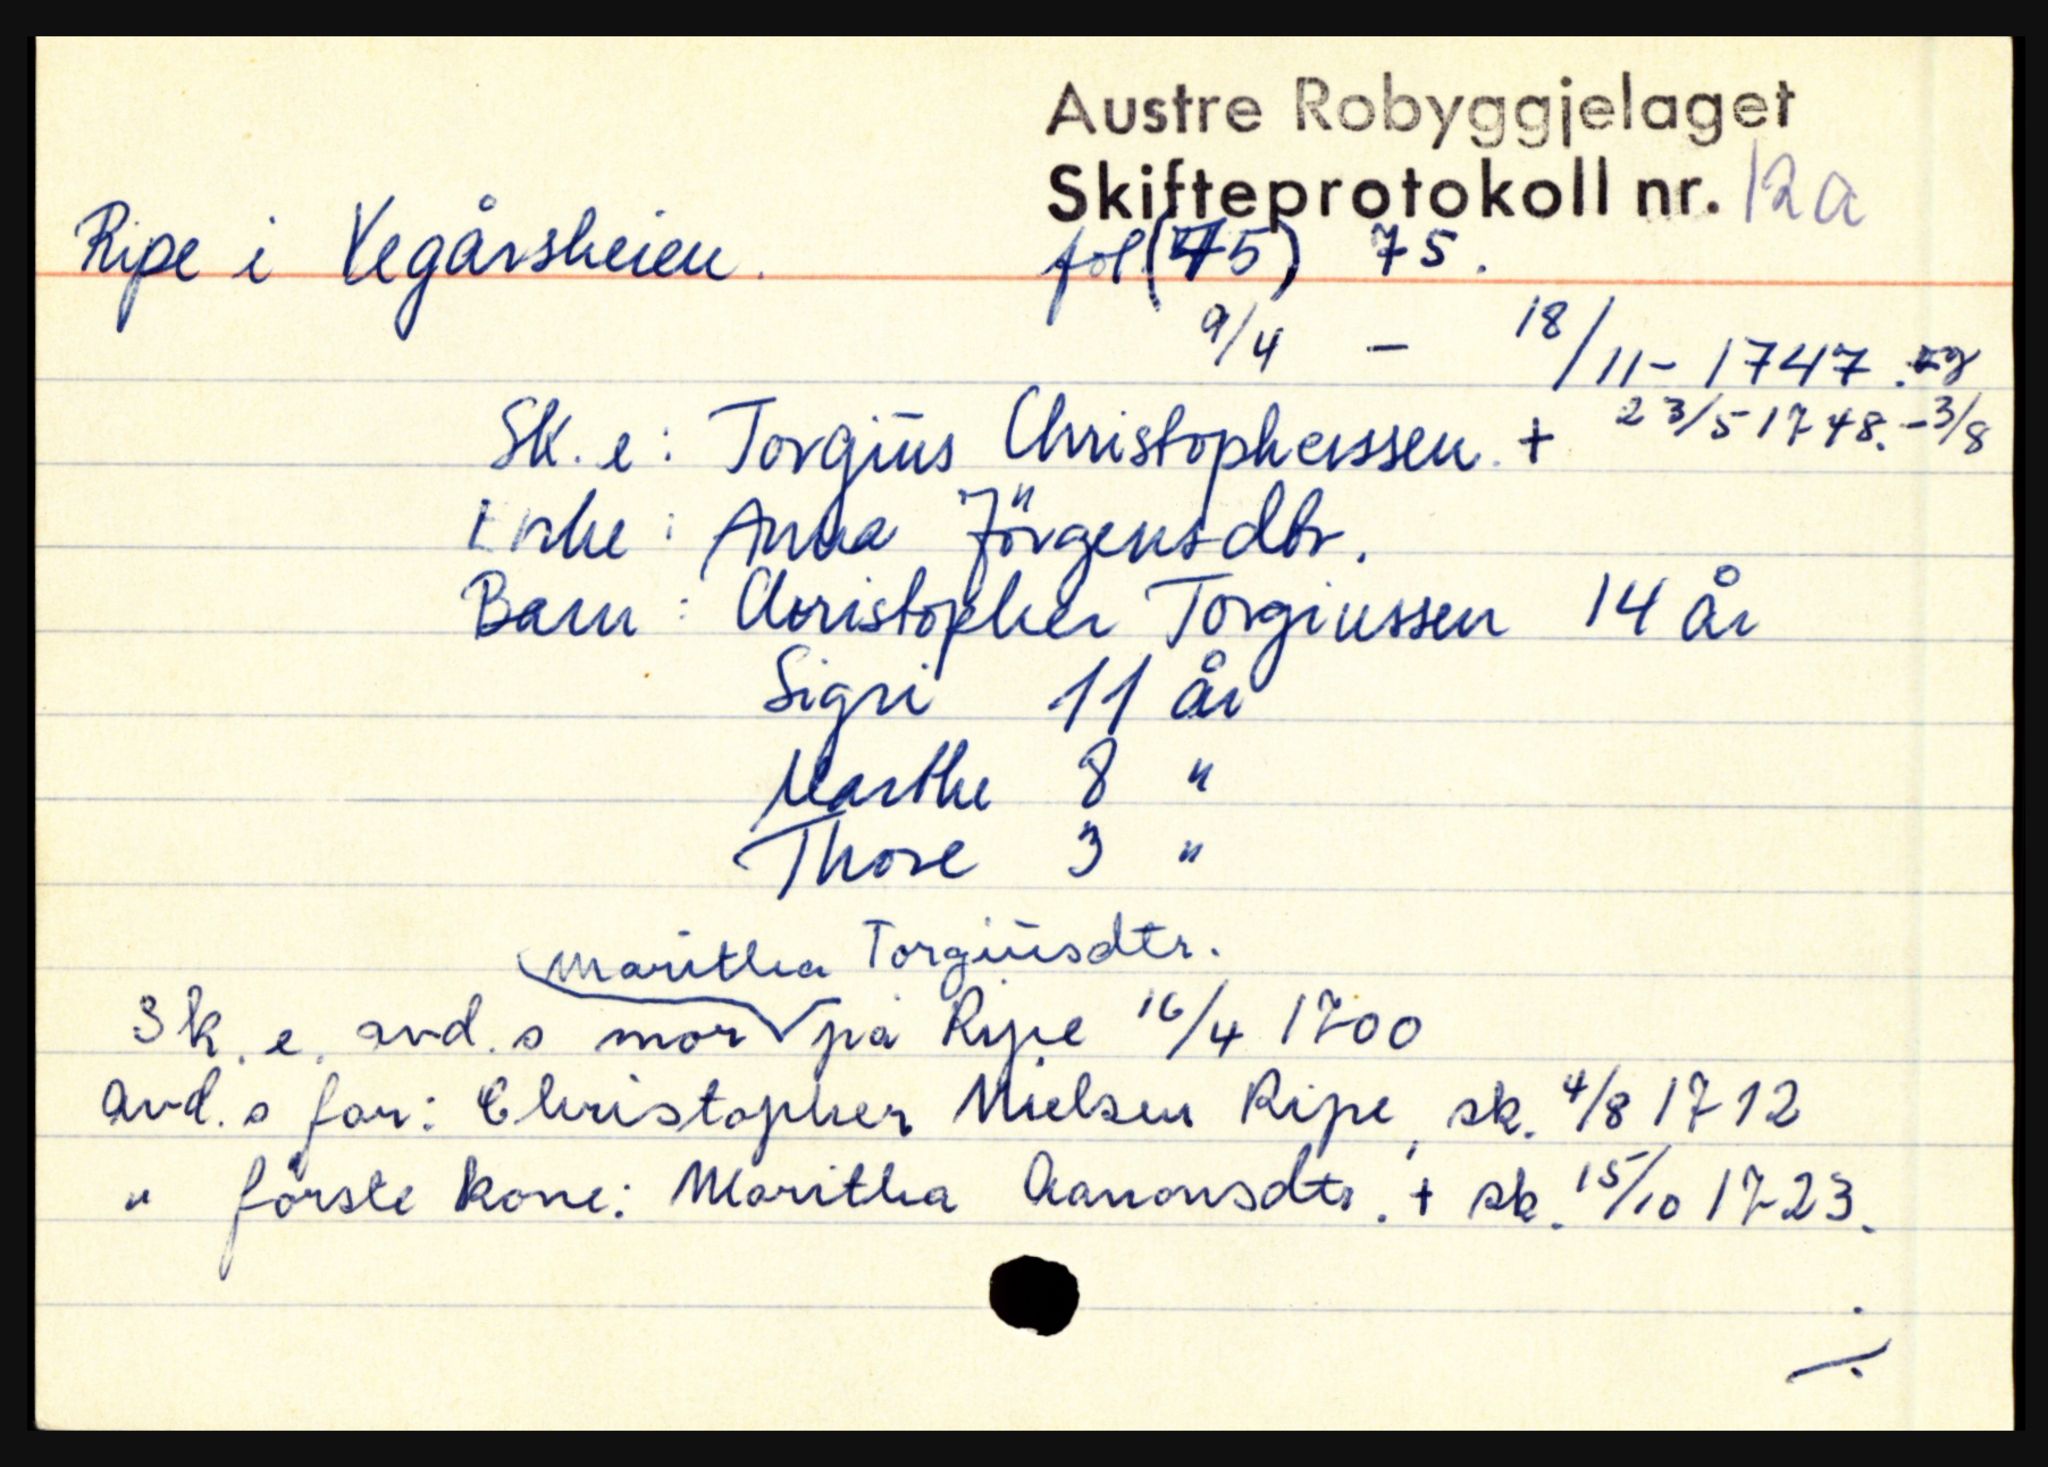 Austre Robyggjelaget
Skifteprotokoll nr. 12a
Ripe i Vegårsheien. fol (75) 75.
9/4 - 18/11 - 1747. og
23/5 1748. - 3/8
Sk. e: Torgius Christopherssen. +
Enke: Anna Jörgensdtr.
Barn: Christopher Torgiussen 14 år
Sigri 11 år
Marthe 8 "
Thore 3 "
Maritha Torgiusdtr.
Sk. e. avd. s mor på Ripe 16/4 1700
avd. s far: Christopher Nielsen Ripe, sk. 4/8 1712
" förste kone: Maritha Aanonsdtr. + sk. 15/10 1723.
./.